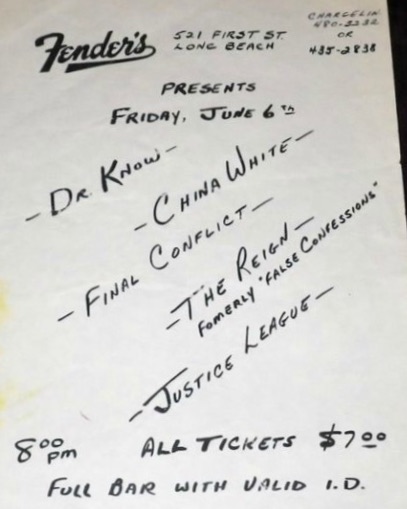 Fender's
521 FIRST ST.
LONG BEACH
CHARGELINE
480-2232
OR
435-2838
PRESENTS
FRIDAY, JUNE 6TH
- DR. KNOW -
- CHINA WHITE -
- FINAL CONFLICT -
- THE REIGN -
FOMERLY "FALSE CONFESSIONS"
- JUSTICE LEAGUE -
8:00 PM ALL TICKETS $7.00
FULL BAR WITH VALID I.D.